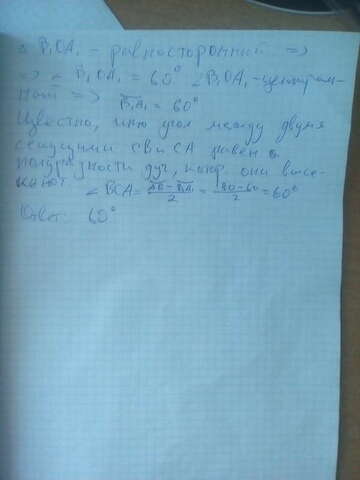 з B₁OA₁ - равносторонний =>
=> ∠ B₁OA₁ = 60° ∠B₁OA₁ - централь-
ный => B₁A₁ = 60°
Известно, что угол между двумя
секущими CB и CA равен
полуразности дуг, котор. они высе-
кают
∠ BCA = (AB - B₁A₁)/2 = (180 - 60)/2 = 60°
Ответ: 60°